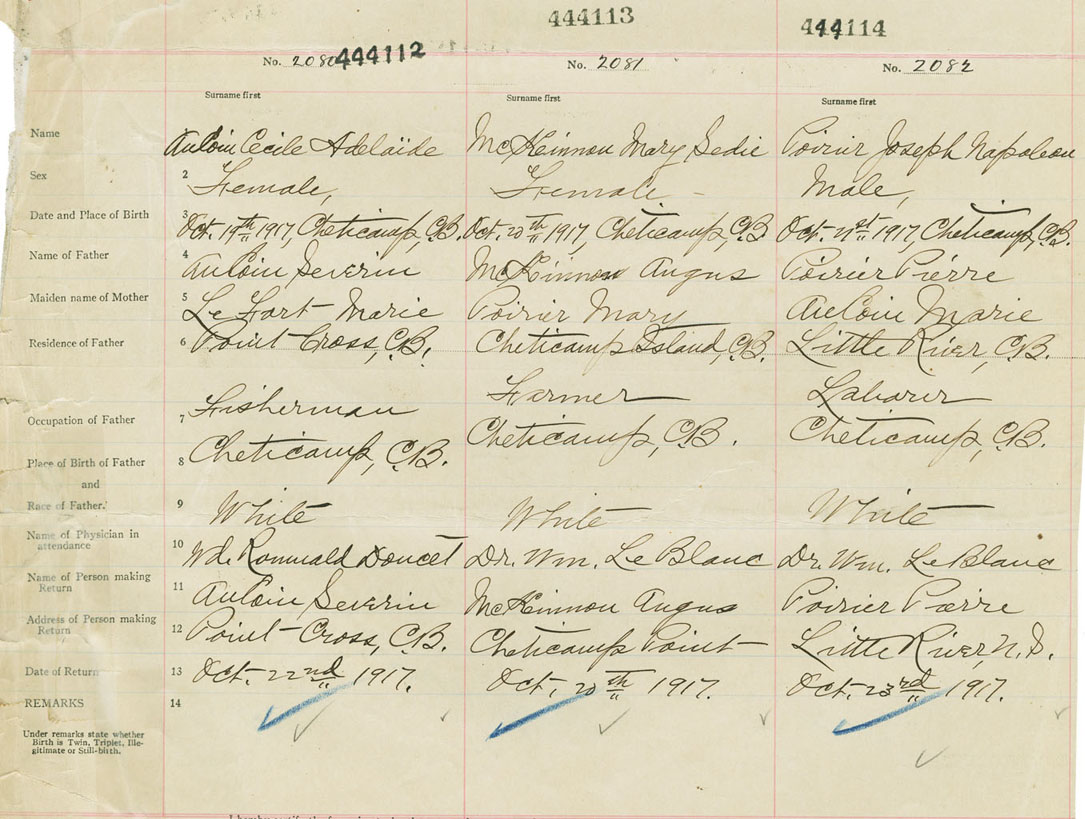 444113
444114
No. 2080 444112
No. 2081
No. 2082
Surname first
Surname first
Surname first
Name
AuCoin Cecile Adelaïde
McKinnon Mary Sedie
Poirier Joseph Napoleon
Sex
2
Female,
Female
Male,
Date and Place of Birth
3
Oct. 19th 1917, Cheticamp, C.B.
Oct. 20th 1917, Cheticamp, C.B.
Oct. 21st 1917, Cheticamp, C.B.
Name of Father
4
AuCoin Severin
McKinnon Angus
Poirier Pierre
Maiden name of Mother
5
Le Fort Marie
Poirier Mary
AuCoin Marie
Residence of Father
6
Point Cross, C.B.
Cheticamp Island, C.B.
Little River, C.B.
Occupation of Father
7
Fisherman
Farmer
Laborer
Place of Birth of Father
8
Cheticamp, C.B.
Cheticamp, C.B.
Cheticamp, C.B.
and
Race of Father.
9
White
White
White
Name of Physician in
attendance
10
Wd. Romuald Doucet
Dr. Wm. Le Blanc
Dr. Wm. Le Blanc
Name of Person making
Return
11
AuCoin Severin
McKinnon Angus
Poirier Pierre
Address of Person making
Return
12
Point Cross, C.B.
Cheticamp Point
Little River, N.S.
Date of Return
13
Oct. 22nd 1917.
Oct. 20th 1917.
Oct. 23rd 1917.
REMARKS
14
Under remarks state whether
Birth is Twin, Triplet, Ille-
gitimate or Still-birth.